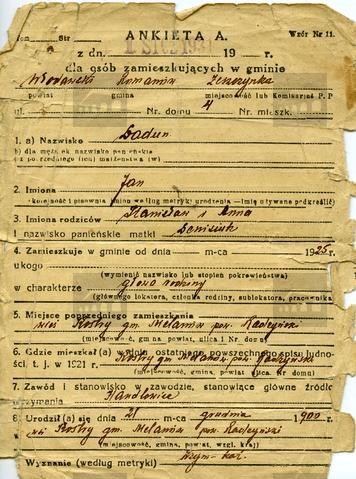 Tom Str ANKIETA A. Wzór Nr 11.
z dn. 1 STY. 1931 19 r.
dla osób zamieszkujących w gminie
Włodawski Romanów Żeszczynka
powiat gmina miejscowość lub Komisarjat P. P
ul. Nr. domu 4 Nr. mieszk.
1. a) Nazwisko Badun
b) dla mężatek nazwisko panieńskie
(z poprzedniego (ich) małżeństwa (w)
2. Imiona Jan
(kolejność i pisownia imion według metryki urodzenia —Imię używane podkreślić)
3. Imiona rodziców Stanisław i Anna
i nazwisko panieńskie matki
4. Zamieszkuje w gminie od dnia m-ca 1925 r.
ukogo
(wymienić nazwisko lub stopień pokrewieństwa)
w charakterze głowa rodziny
(głównego lokatora, członka rodziny, sublokatora, pracownika
5. Miejsce poprzedniego zamieszkania
wieś gm. pow. Radzyń
(miejscowość, gmina, powiat, ulica i Nr domu)
6. Gdzie mieszkał (a) w dniu ostatniego powszechnego spisu ludno-
ści, t. j. w 1921 r. gm. pow. Radzyński
(miejscowość, gmina, powiat, ulica, Nr domu)
7. Zawód i stanowisko w zawodzie, stanowiące główne źródło
utrzymania
8. Urodził (a) się dnia 21 m-ca grudnia 1900 r.
wieś gm. pow. Radzyński
(miejscowość, gmina, powiat, wzgl. kraj)
Wyznanie (według metryki) rzym-kat.